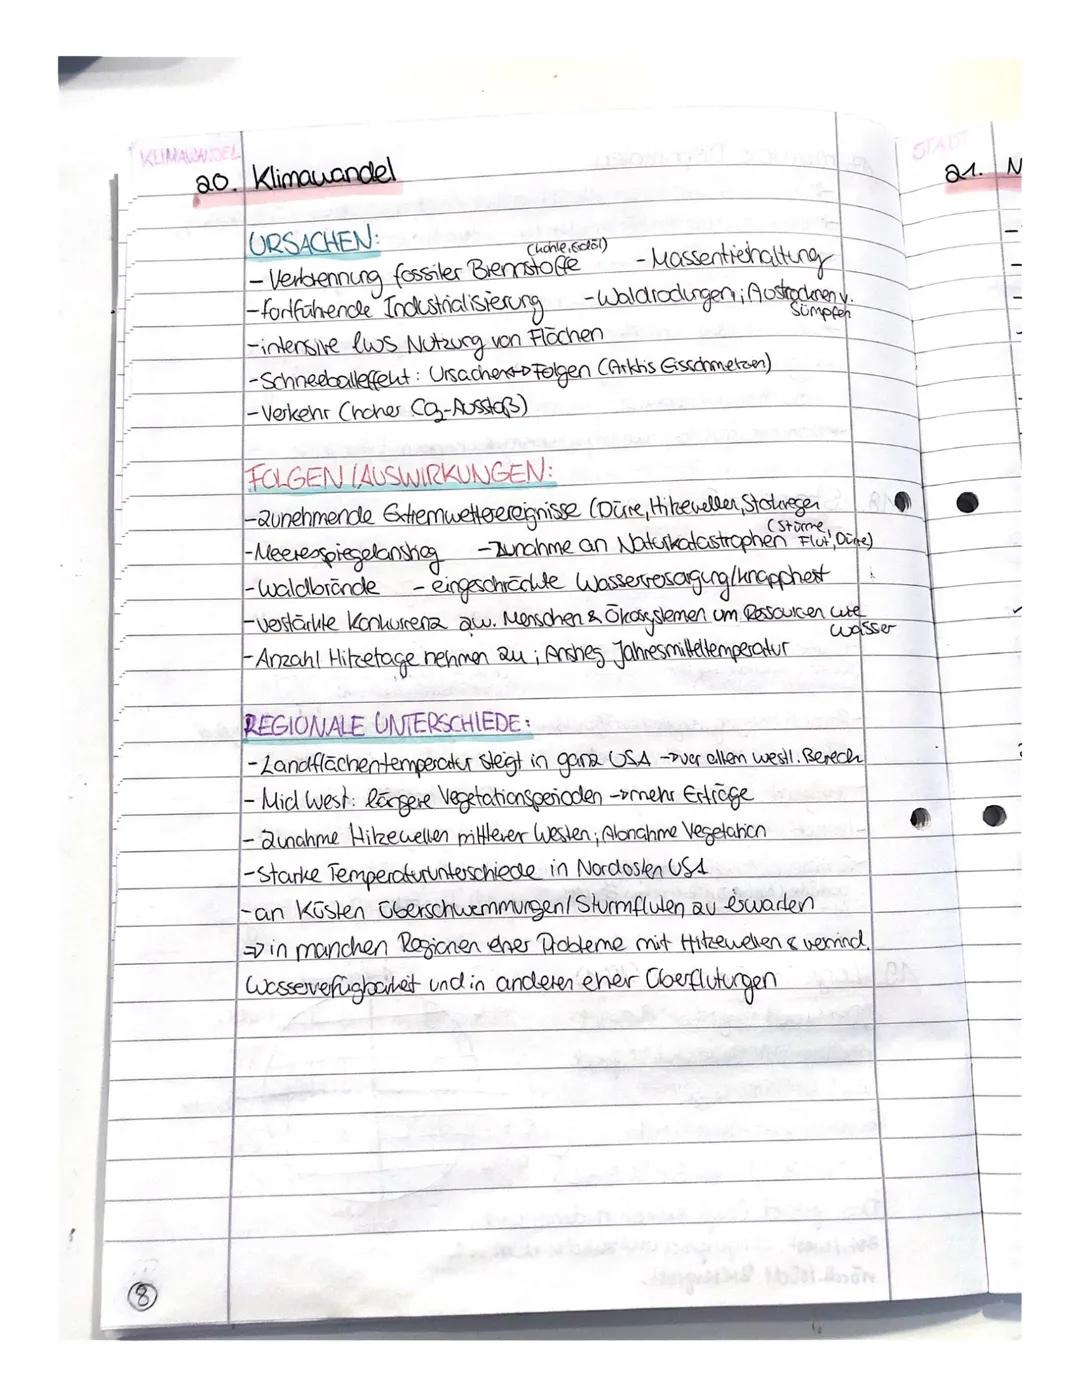 KLIMAWANDEL
20. Klimawandel
URSACHEN:
- Verbrennung fossiler Brennstoffe (Kohle, Erdöl) - Massentierhaltung
- fortführende Industrialisierung - Waldrodungen; Austrocknen v. Sümpfen
- intensive lws Nutzung von Flächen
- Schneeballeffekt: Ursachen ↔ Folgen (Arktis Eisschmelzen)
- Verkehr (hoher CO₂-Ausstoß)
FOLGEN / AUSWIRKUNGEN:
- zunehmende Extremwetterereignisse (Dürre, Hitzewellen, Starkregen
- Meeresspiegelanstieg - Zunahme an Naturkatastrophen (Stürme, Flut, Dürre)
- Waldbrände - eingeschränkte Wasserversorgung/knappheit
- verstärkte Konkurrenz zw. Menschen & Ökosystemen um Ressourcen wie Wasser
- Anzahl Hitzetage nehmen zu; Anstieg Jahresmitteltemperatur
REGIONALE UNTERSCHIEDE:
- Landflächentemperatur steigt in ganz USA → vor allem westl. Bereich
- Mid West: längere Vegetationsperioden → mehr Erträge
- Zunahme Hitzewellen mittlerer Westen; Abnahme Vegetation
- Starke Temperaturunterschiede in Nordosten USA
- an Küsten Überschwemmungen/Sturmfluten zu erwarten
⇒ in manchen Regionen eher Probleme mit Hitzewellen & vermind.
Wasserverfügbarkeit und in anderen eher Überflutungen
8
STADT
21. N